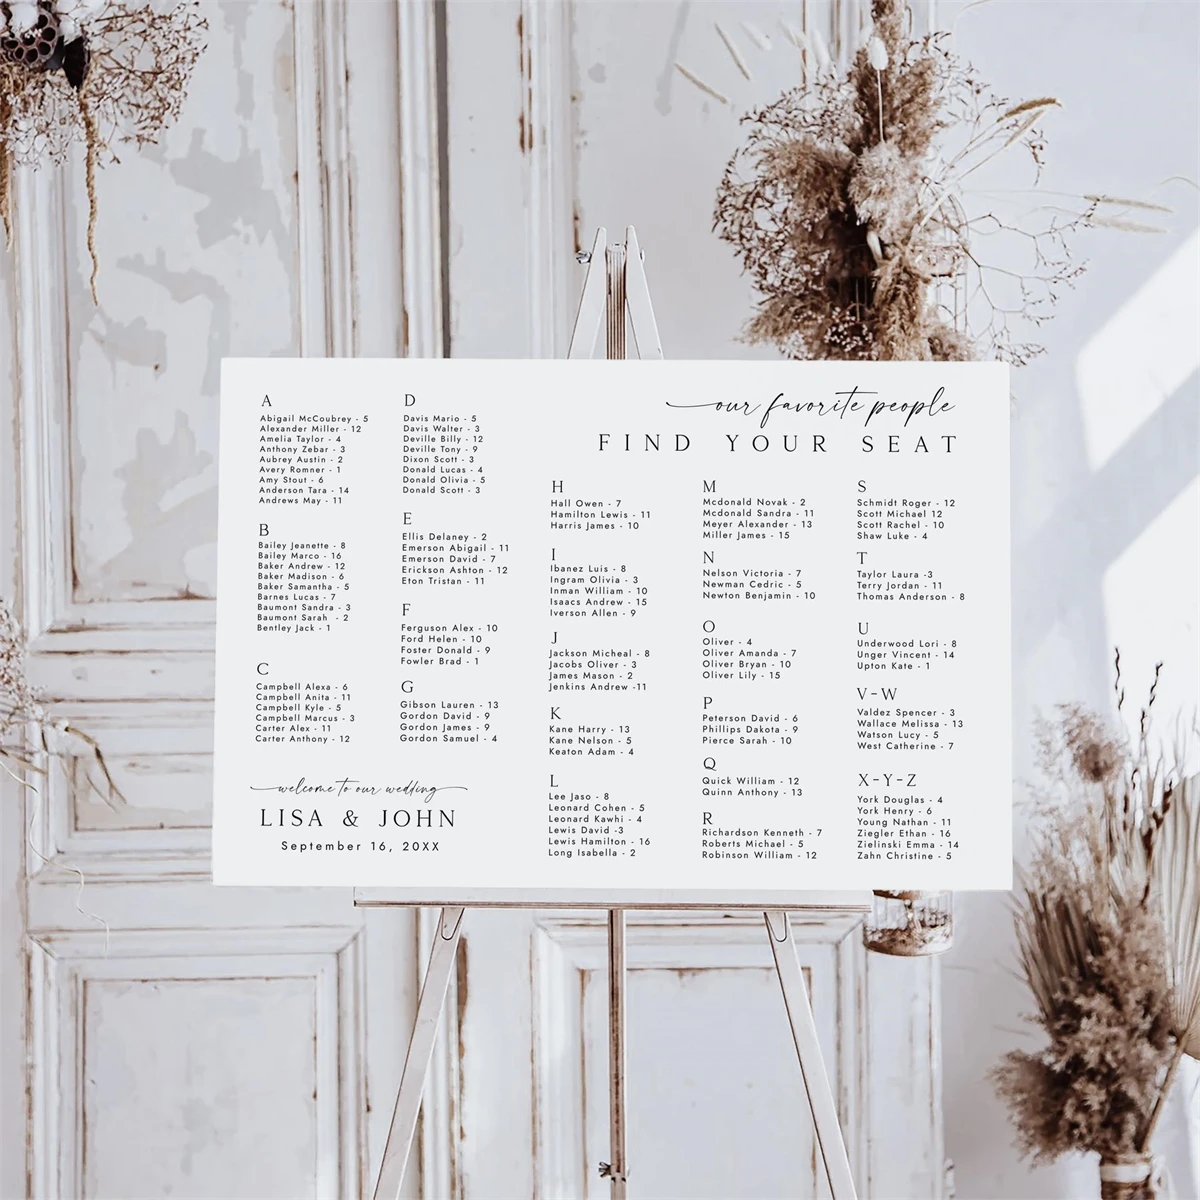 A
Abigail McCoubrey - 5
Alexander Miller - 12
Amelia Taylor - 4
Anthony Zebar - 3
Aubrey Austin - 2
Avery Romner - 1
Amy Stout - 6
Anderson Tara - 14
Andrews May - 11
B
Bailey Jeanette - 8
Bailey Marco - 16
Baker Andrew - 12
Baker Madison - 6
Baker Samantha - 5
Barnes Lucas - 7
Baumont Sandra - 3
Baumont Sarah - 2
Bentley Jack - 1
C
Campbell Alexa - 6
Campbell Anita - 11
Campbell Kyle - 5
Campbell Marcus - 3
Carter Alex - 11
Carter Anthony - 12
D
Davis Mario - 5
Davis Walter - 3
Deville Billy - 12
Deville Tony - 9
Dixon Scott - 3
Donald Lucas - 4
Donald Olivia - 5
Donald Scott - 3
E
Ellis Delaney - 2
Emerson Abigail - 11
Emerson David - 7
Erickson Ashton - 12
Eton Tristan - 11
F
Ferguson Alex - 10
Ford Helen - 10
Foster Donald - 9
Fowler Brad - 1
G
Gibson Lauren - 13
Gordon David - 9
Gordon James - 9
Gordon Samuel - 4
welcome to our wedding
LISA & JOHN
September 16, 20XX
our favorite people
FIND YOUR SEAT
H
Hall Owen - 7
Hamilton Lewis - 11
Harris James - 10
I
Ibanez Luis - 8
Ingram Olivia - 3
Inman William - 10
Isaacs Andrew - 15
Iverson Allen - 9
J
Jackson Micheal - 8
Jacobs Oliver - 3
James Mason - 2
Jenkins Andrew -11
K
Kane Harry - 13
Kane Nelson - 5
Keaton Adam - 4
L
Lee Jaso - 8
Leonard Cohen - 5
Leonard Kawhi - 4
Lewis David -3
Lewis Hamilton - 16
Long Isabella - 2
M
Mcdonald Novak - 2
Mcdonald Sandra - 11
Meyer Alexander - 13
Miller James - 15
N
Nelson Victoria - 7
Newman Cedric - 5
Newton Benjamin - 10
O
Oliver - 4
Oliver Amanda - 7
Oliver Bryan - 10
Oliver Lily - 15
P
Peterson David - 6
Phillips Dakota - 9
Pierce Sarah - 10
Q
Quick William - 12
Quinn Anthony - 13
R
Richardson Kenneth - 7
Roberts Michael - 5
Robinson William - 12
S
Schmidt Roger - 12
Scott Michael 12
Scott Rachel - 10
Shaw Luke - 4
T
Taylor Laura -3
Terry Jordan - 11
Thomas Anderson - 8
U
Underwood Lori - 8
Unger Vincent - 14
Upton Kate - 1
V-W
Valdez Spencer - 3
Wallace Melissa - 13
Watson Lucy - 5
West Catherine - 7
X-Y-Z
York Douglas - 4
York Henry - 6
Young Nathan - 11
Ziegler Ethan - 16
Zielinski Emma - 14
Zahn Christine - 5